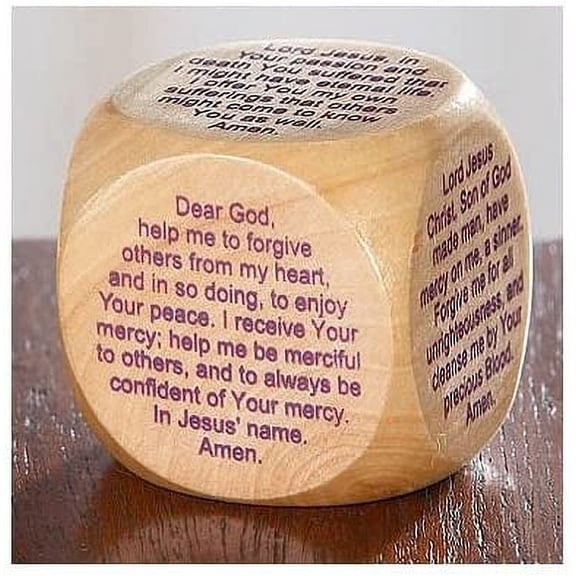 Lord Jesus, in
Your passion and
death You suffered that
I might have eternal life.
I offer You my own
sufferings that others
might come to know
You as well.
Amen.
Dear God,
help me to forgive
others from my heart,
and in so doing, to enjoy
Your peace. I receive Your
mercy; help me be merciful
to others, and to always be
confident of Your mercy.
In Jesus' name.
Amen.
Lord Jesus
Christ, Son of God
made man, have
mercy on me, a sinner.
Forgive me for all
unrighteousness, and
cleanse me by Your
precious Blood.
Amen.